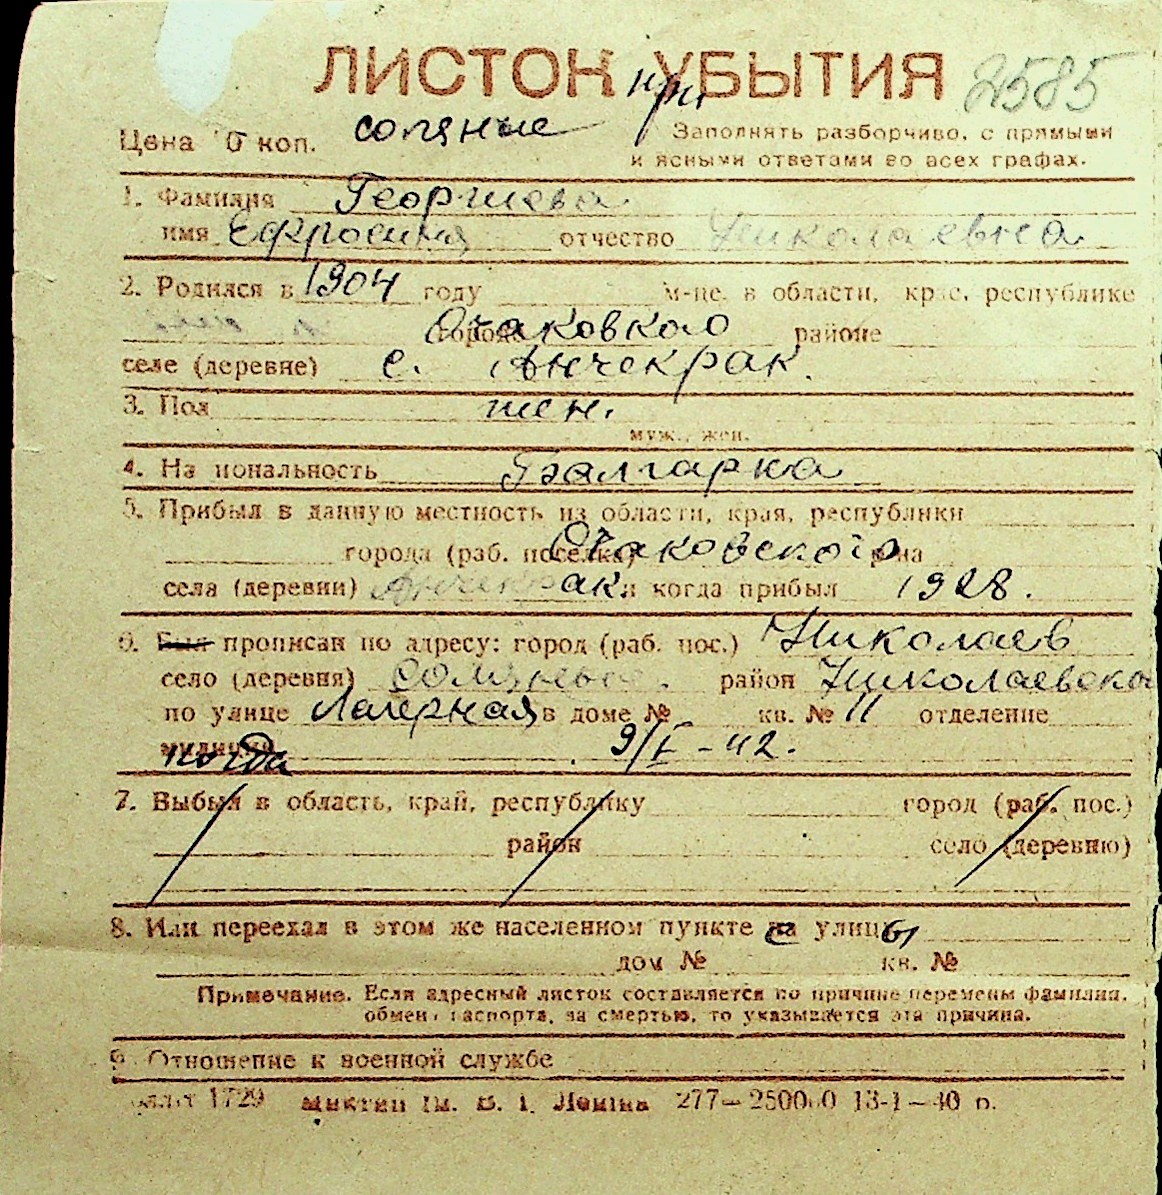 ЛИСТОК УБЫТИЯ 2585
Цена 10 коп. соляные Заполнять разборчиво, с прямыми
и ясными ответами во всех графах.
1. Фамилия Георгиева
имя Ефросиния отчество Николаевна
2. Родился в 1904 году м-це, в области, крае, республике
города Очаковкого районе
селе (деревне) с. Анчекрак.
3. Пол жен.
муж., жен.
4. Национальность Балгарка
5. Прибыл в данную местность из области, края, республики
города (раб. поселка) Очаковского р-на
села (деревни) Анчекрак и когда прибыл 1928.
6. Был прописан по адресу: город (раб. пос.) Николаев
село (деревня) Соляные. район Николаевский
по улице Лагерная в доме № кв. № 11 отделение
милиции когда 9/I-42.
7. Выбыл в область, край, республику город (раб. пос.)
район село (деревню)
8. Или переехал в этом же населенном пункте с улицы
дом № кв. №
Примечание. Если адресный листок составляется по причине перемены фамилии,
обмена паспорта, за смертью, то указывается эта причина.
9. Отношение к военной службе
1729 Миктип Ім. В. І. Леніна 277—250000 13-I—40 р.